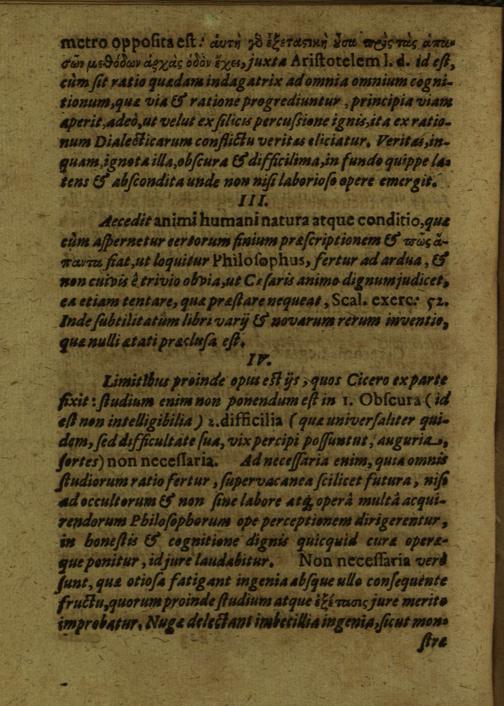 metro opposita est: αὐτὴ γὸ ἐξεταςικὴ ὖσα πρὸς τὰς ἁπα-
σῶν μεθόδων ἀρχὰς ὁδὸν ἔχει, juxta Aristotelem l. d. id est,
cùm sit ratio quædam indagatrix ad omnia omnium cogni-
tionum, quæ via & ratione progrediuntur, principia viam
aperit, adeò, ut velut ex silicis percussione ignis, ita ex ratio-
num Dialecticarum conflictu veritas eliciatur. Veritas, in-
quam, ignota illa, obscura & difficilima, in fundo quippe la-
tens & abscondita unde non nisi laborioso opere emergit.
III.
Accedit animi humani natura atque conditio, quæ
cùm aspernetur certorum finium præscriptionem & πως ἅ-
παντα fiat, ut loquitur Philosophus, fertur ad ardua, &
non cuivis è trivio obvia, ut Cæsaris animo dignum judicet,
ea etiam tentare, quæ præstare nequeat, Scal. exerc: 52.
Inde subtilitatum libri varij & novarum rerum inventio,
quæ nulli ætati præclusa est.
IV.
Limitibus proinde opus est ijs, quos Cicero ex parte
fixit: studium enim non ponendum est in 1. Obscura (id
est non intelligibilia) 2. difficilia (quæ universaliter qui-
dem, sed difficultate sua, vix percipi possunt ut, auguria,
sortes) non necessaria. Ad necessaria enim, quia omnis
studiorum ratio fertur, supervacanea scilicet futura, nisi
ad occultorum & non sine labore atq; operâ multâ acqui-
rendorum Philosophorum ope perceptionem dirigerentur,
in honestis & cognitione dignis quicquid curæ operæ-
que ponitur, id jure laudabitur. Non necessaria verò
sunt, quæ otiosa fatigant ingenia absque ullo consequente
fructu, quorum proinde studium atque ἐξέτασις jure merito
improbatur. Nugæ delectant imbecillia ingenia, sicut mon-
stra